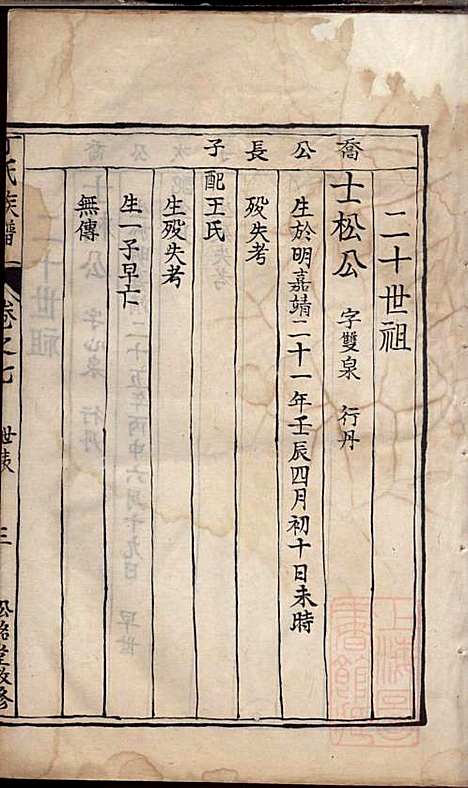 二十世祖
喬公長子
士松公 字雙泉 行丹
生於明嘉靖二十一年壬辰四月初十日未時
殁失考
配王氏
生殁失考
生一子早亡
無傳
氏族譜
卷之七 世表 三